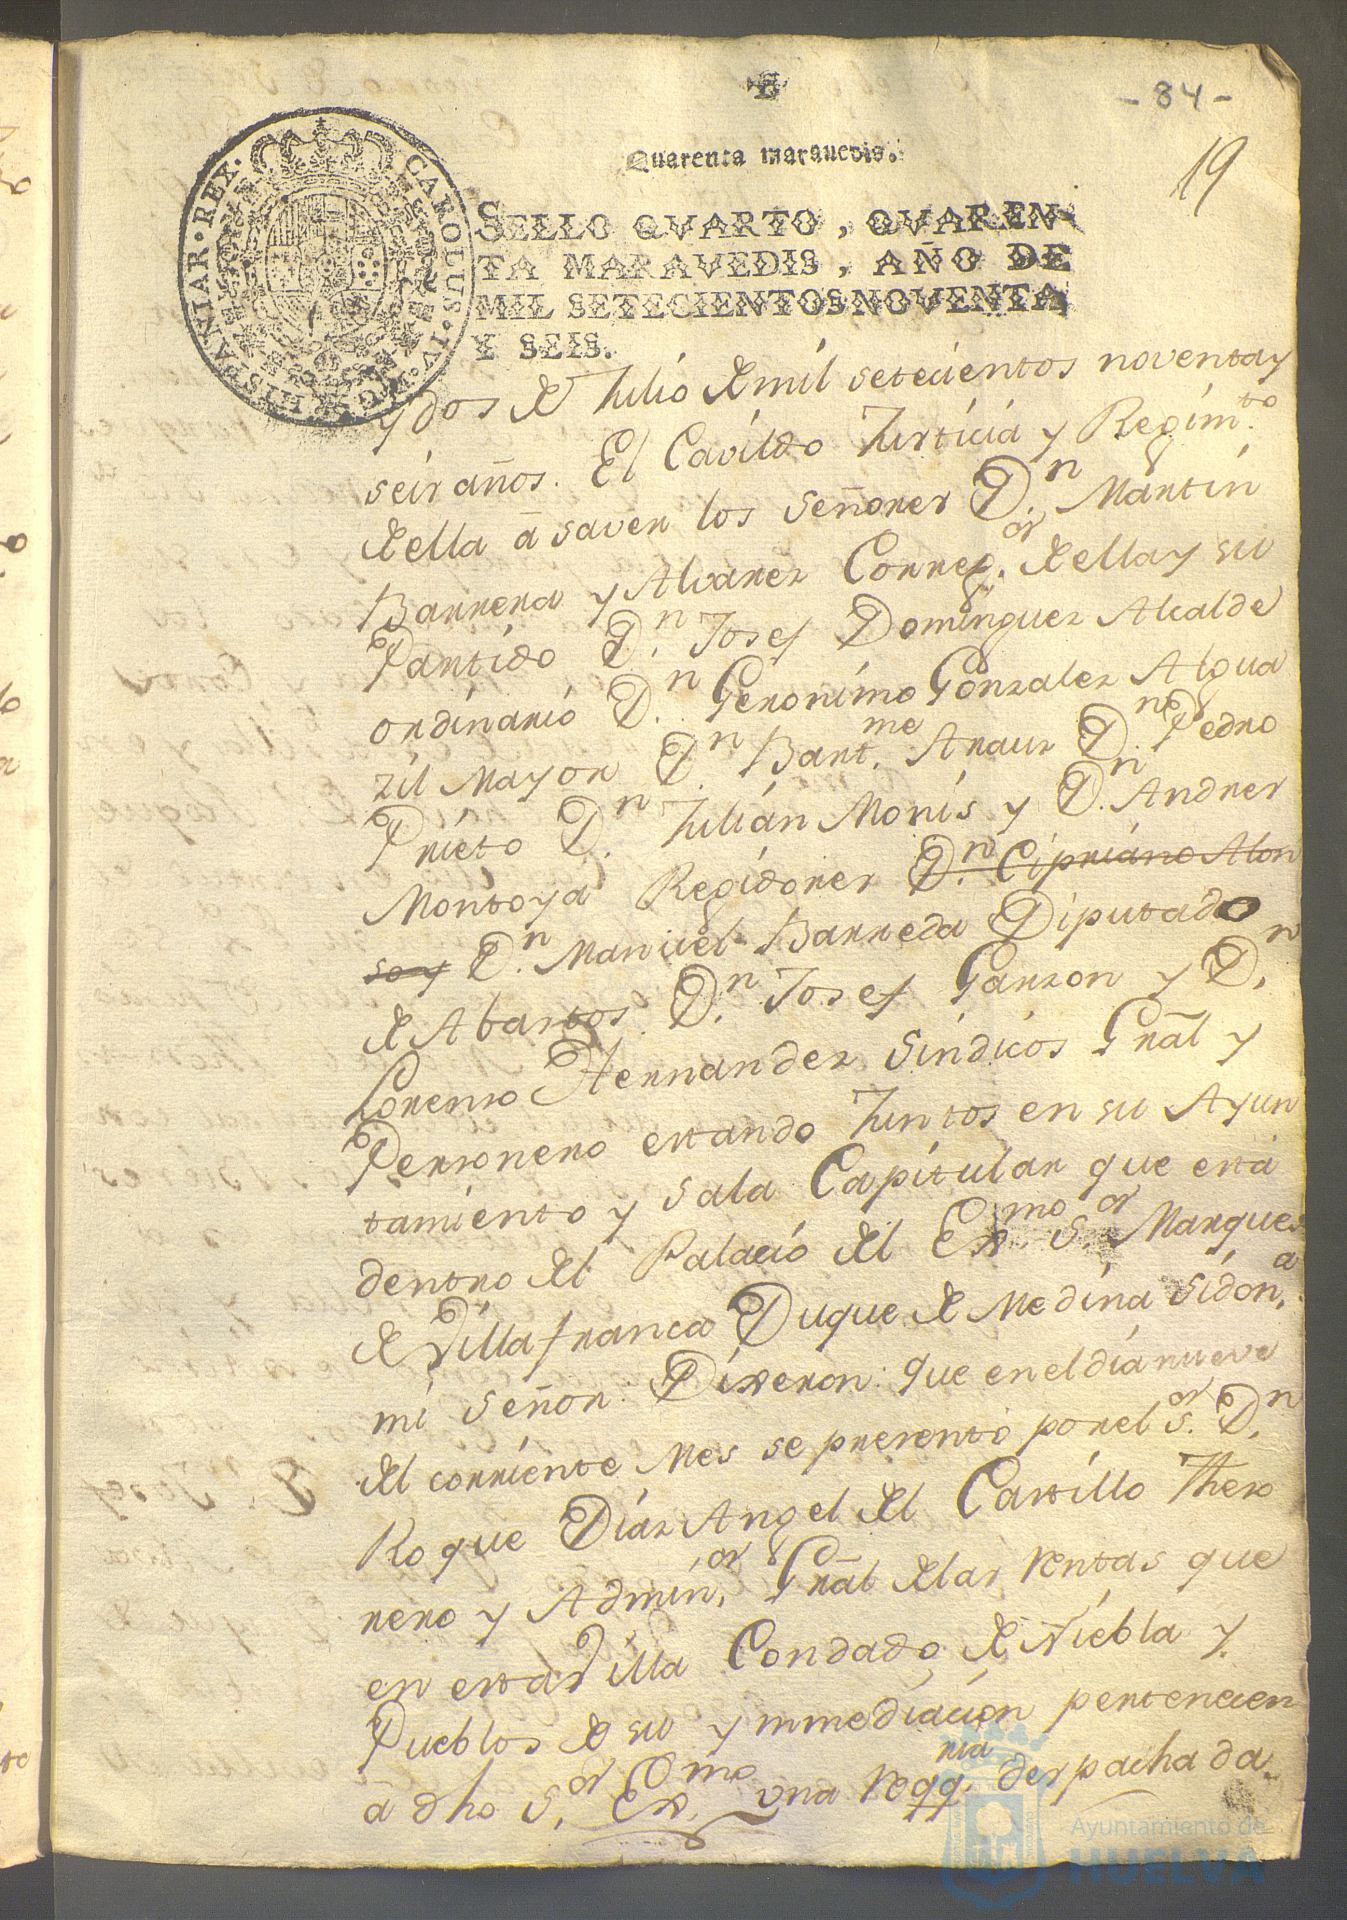 - 84 -
19
Quarenta marauedis.
SELLO QVARTO, QVAREN-
TA MARAVEDIS, AÑO DE
MIL SETECIENTOS NOVENTA
Y SEIS.
CAROLUS · IV · D · G · HISPANIAR · REX ·
y dos de Julio de mil setecientos noventa y
seis años. El Cavildo Justicia y Regim.to
de ella â saver los señores D.n Martin
Barrera y Alvarez Correg.or de ella y su
Partido D.n Josef Dominguez Alcalde
ordinario D.n Geronimo Gonzalez Algua
zil Mayor D.n Bart.me Araus D.n Pedro
Prieto D.n Julián Monis y D.n Andres
Montoya Regidores D.n Cipriano Alon
so y D.n Manuel Barreda Diputado
de Abastos D.n Josef Garzon y D.n
Lorenso Hernandez Sindicos Grãl y
Personero estando Juntos en su Ayun
tamiento y sala Capitular que está
dentro del Palacio del Ex.mo S.or Marques
de Villafranca Duque de Medina Sidon.a
mi señor Dixeron: que en el dia nueve
del corriente Mes se presentó por el S.or D.n
Roque Diaz Angel del Castillo Theso
rero y Admin.or Grãl de las rentas que
en esta Villa Condado de Niebla y
Pueblos de su ymmediacion pertenecen
â dho S.or Ex.mo una reqq.ria despachada
Ayuntamiento de
HUELVA